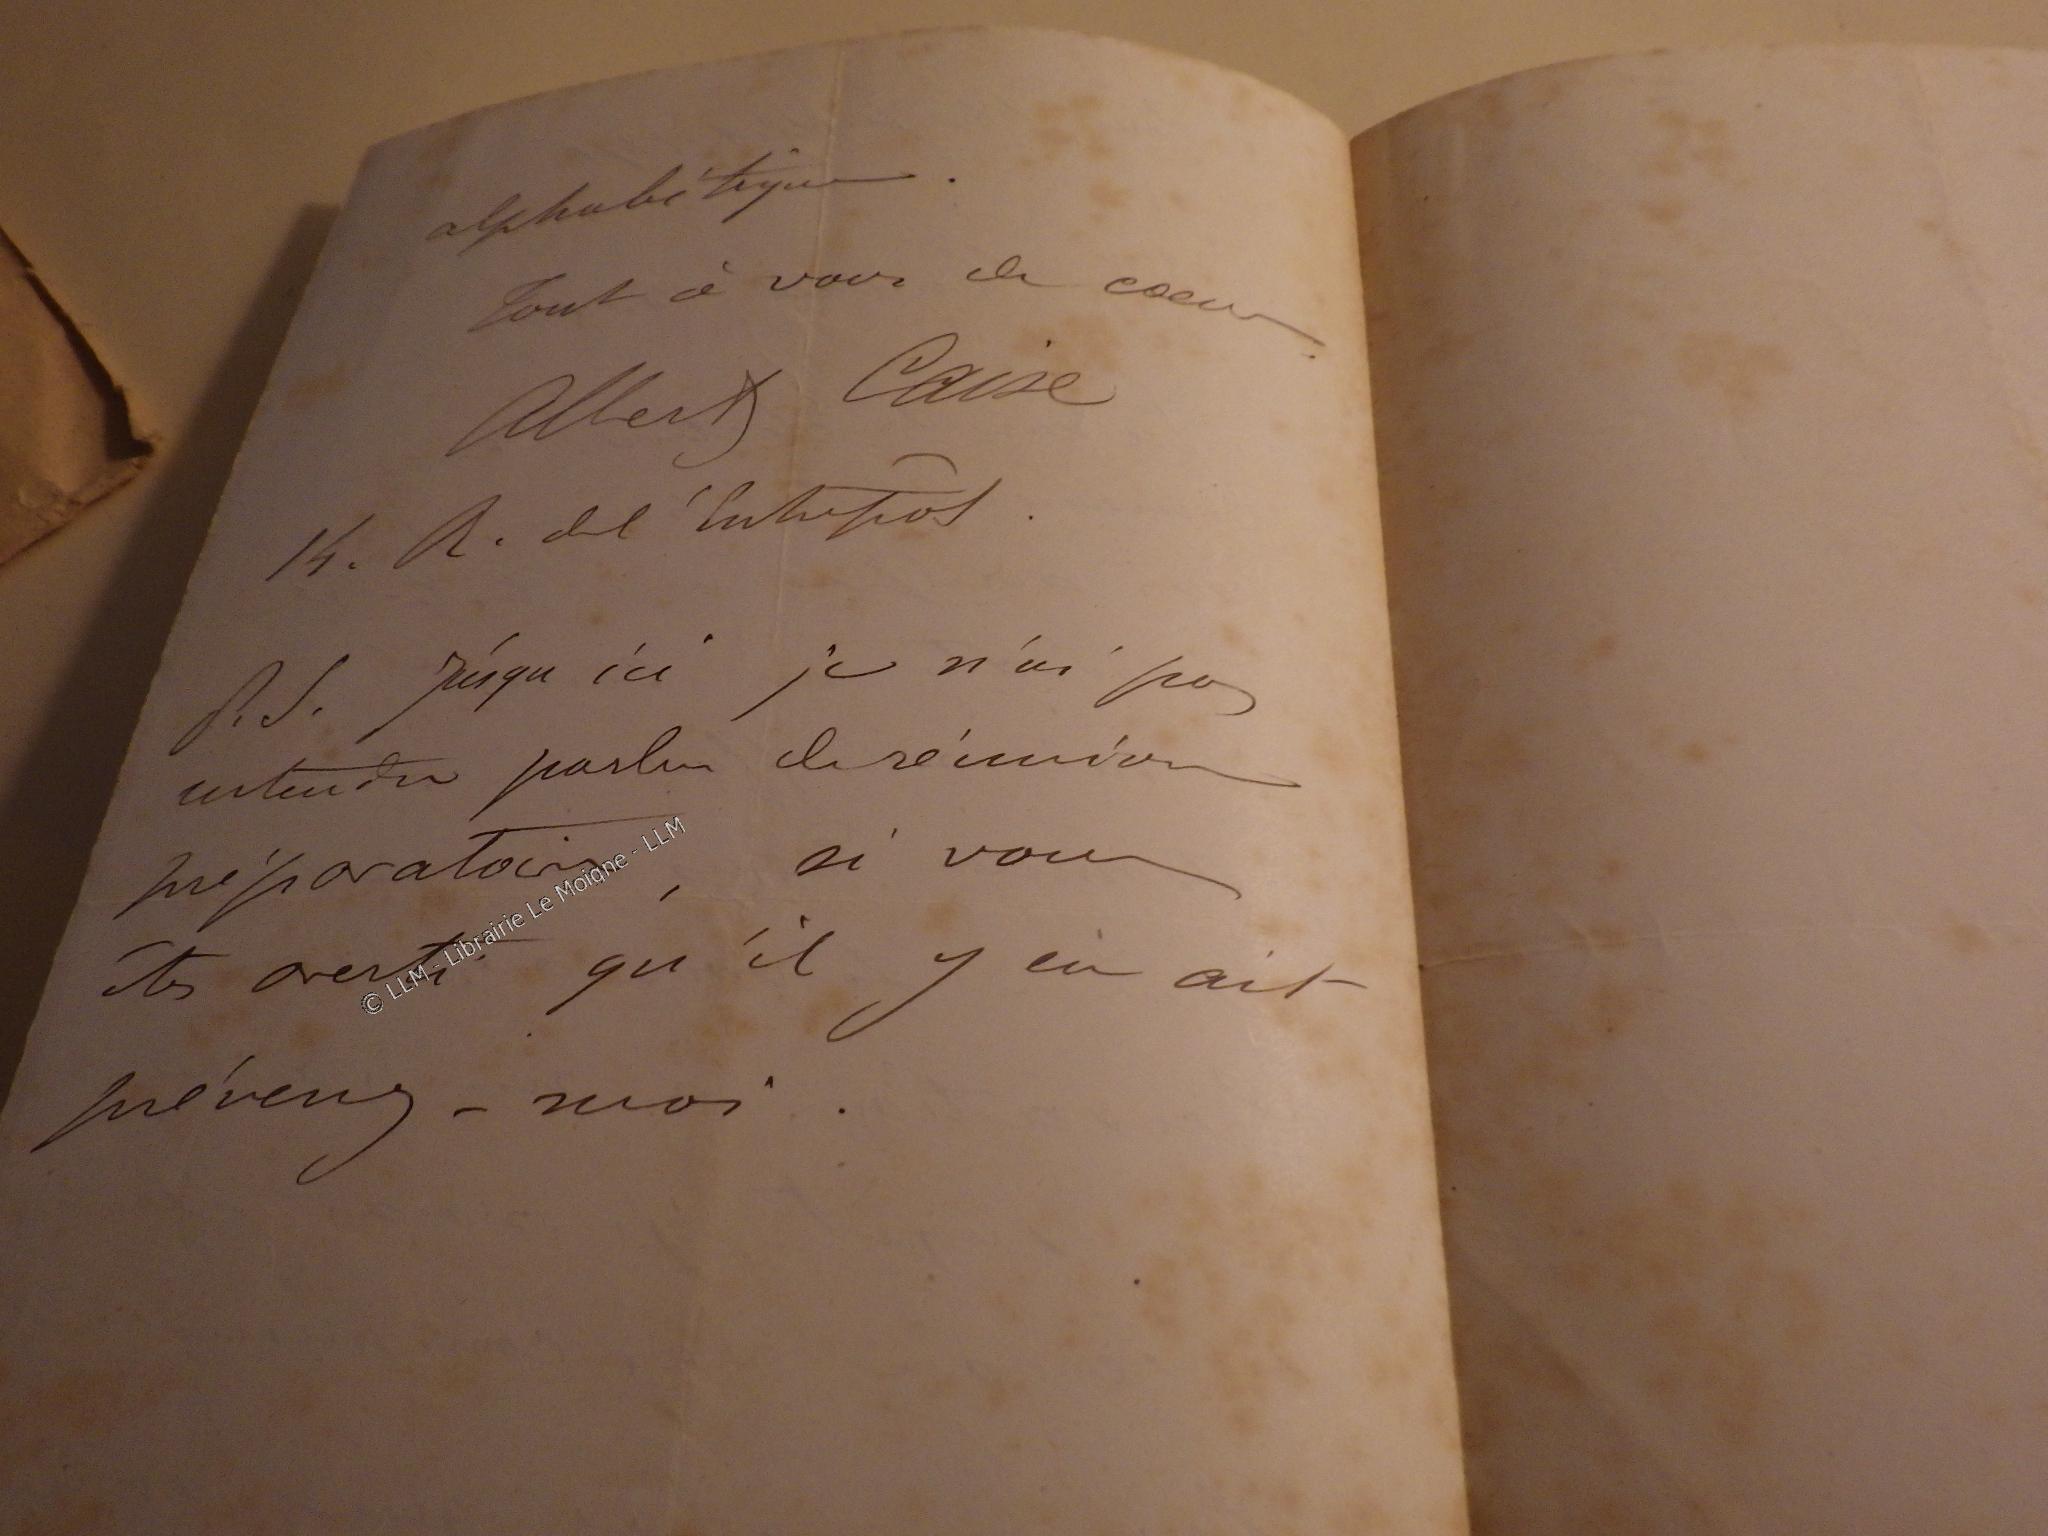 alphabétique.
Tout à vous de coeur.
Albert Caise
14. R. de l'Entrepôt.
P.S. Jusqu'ici je n'ai pas
entendu parler de réunion
préparatoire, si vous
êtes averti qu'il y en ait
prévenez-moi.
© LLM - Librairie Le Moigne - LLM